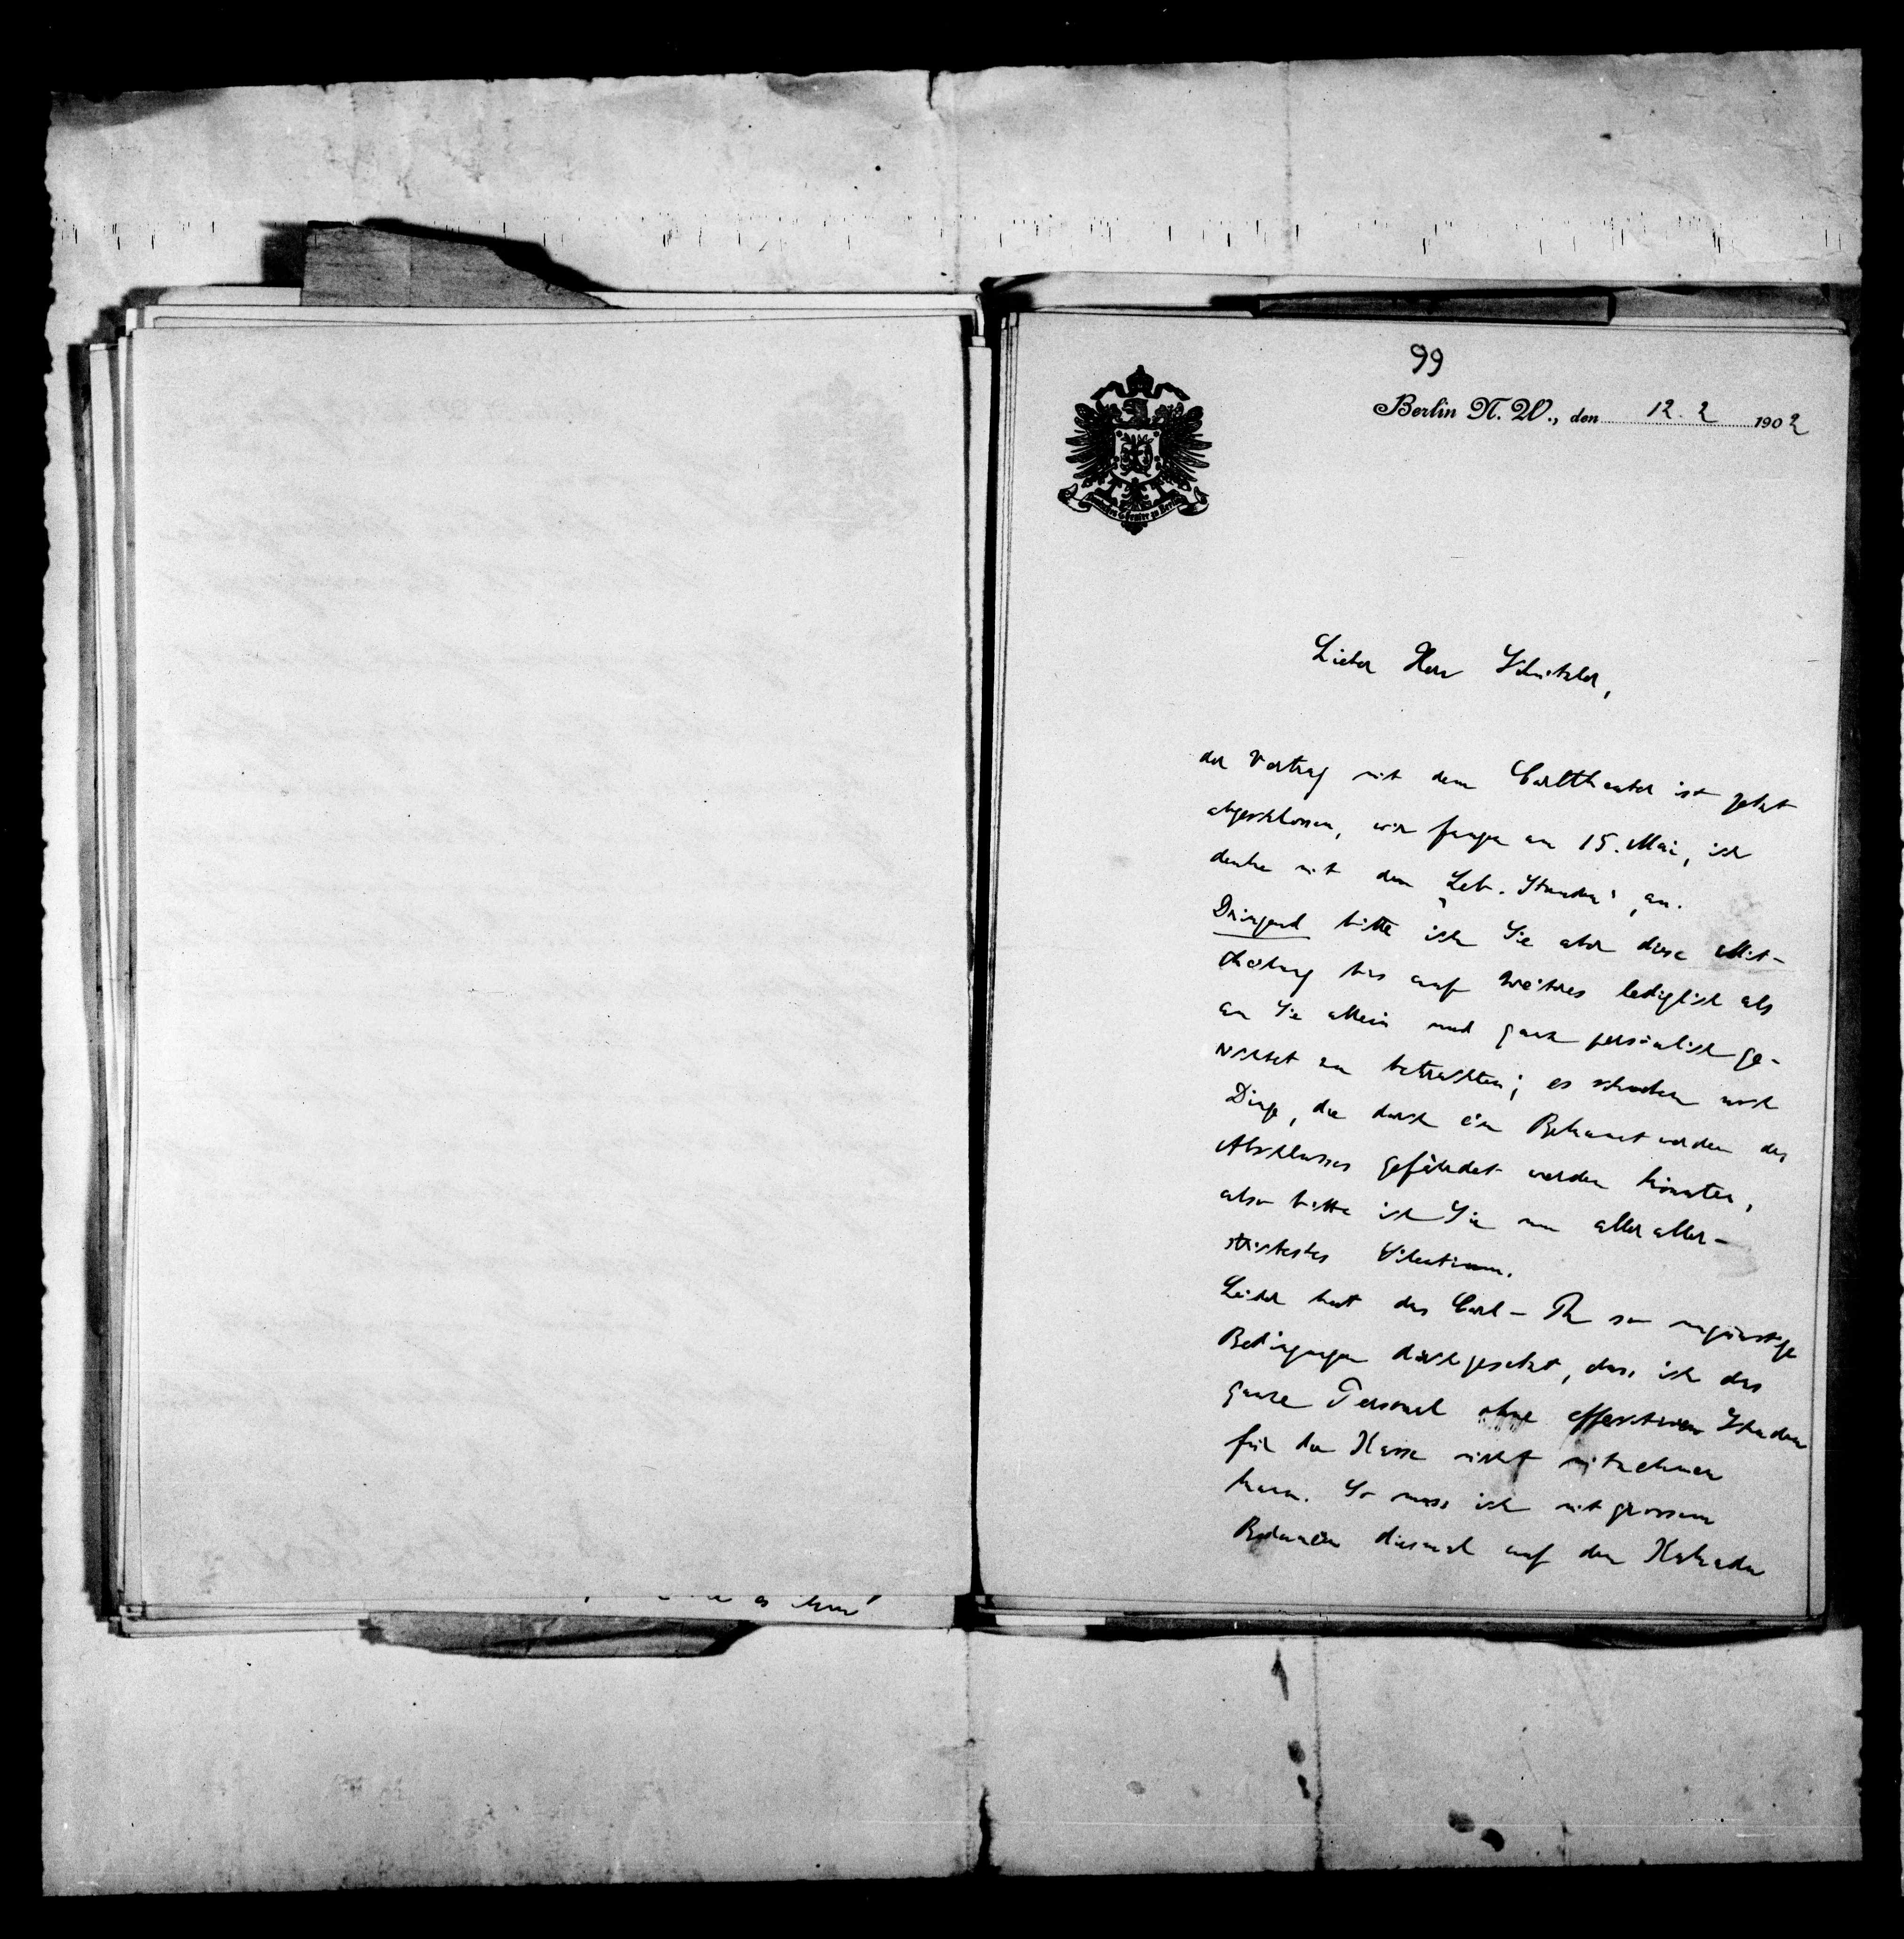 99
Berlin N. W., den 12. 2 1902
Deutsches Theater zu Berlin
Lieber Herr Schnitzler,
der Vertrag mit dem Carltheater ist jetzt
abgeschlossen, wir fangen am 15. Mai, ich
denke mit den „Leb. Stunden“, an.
Dringend bitte ich Sie aber diese Mit-
theilung bis auf weitres lediglich als
an Sie allein und ganz persönlich ge-
richtet zu betrachten; es schweben noch
Dinge, die durch ein Bekanntwerden des
Abschlusses gefährdet werden könnten,
also bitte ich Sie um alleraller-
striktestes Silentium.
Leider hat das Carl-Th so ungünstige
Bedingungen durchgesetzt, dass ich das
ganze Personal ohne effectiven Schaden
für die Kasse nicht mitnehmen
kann. So muss ich mit grossem
Bedauern diesmal auf den Kakadu
es